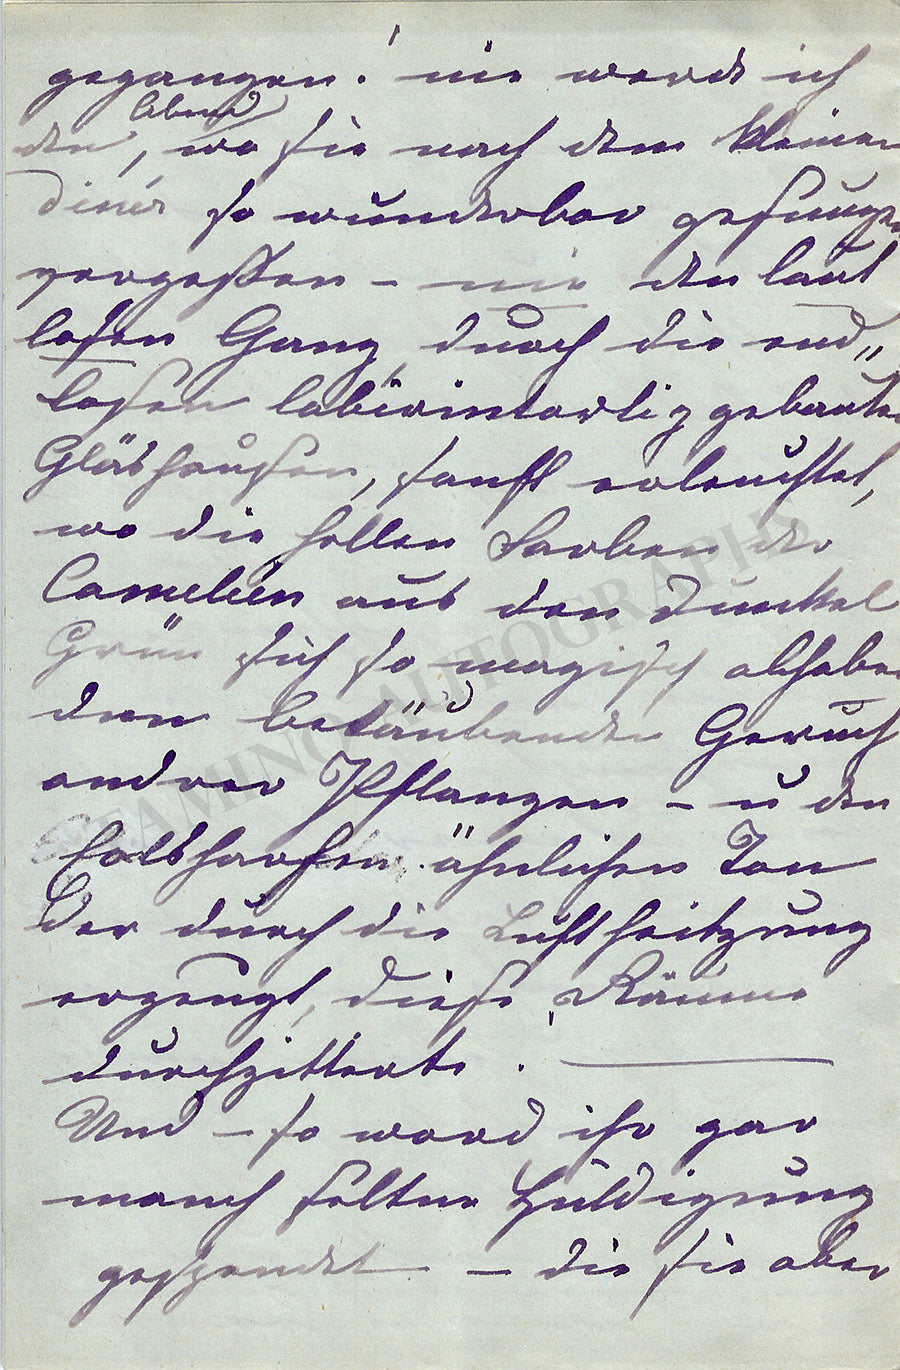 gegangen! nie werde ich
den Abend, wo sie nach dem kleinen
diner so wunderbar gesungen
vergeßen – nie den laut
losen Gang durch die end„
losen labirintartig gebauten
Gläshäuser, sanft erleuchtet,
wo die hellen Farben der
Camelien aus den Dunkel
Grün sich so magisch abhaben
den betäubenden Geruch
andrer Pflanzen – u den
Eolsharfen ähnlichen Ton
der durch die Luftheitzung
erzeugt, diese Räume
durchzitterte! —
Und – so ward ihr gar
manch seltne Huldigung
gespendet – die sie aber
TAMINO AUTOGRAPHS